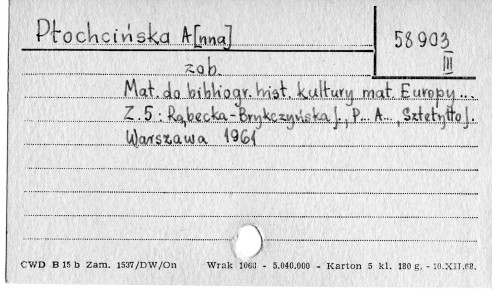 Płochcińska A[nna]
58903
III
zob.
Mat. do bibliogr. hist. kultury mat. Europy...
Z. 5: Rąbecka-Brykczyńska J., P... A., Sztetyłło J.
Warszawa 1961
CWD B 15 b Zam. 1537/DW/On Wrak 1060 - 5.040.000 - Karton 5 kl. 180 g. - 10.XII.68.